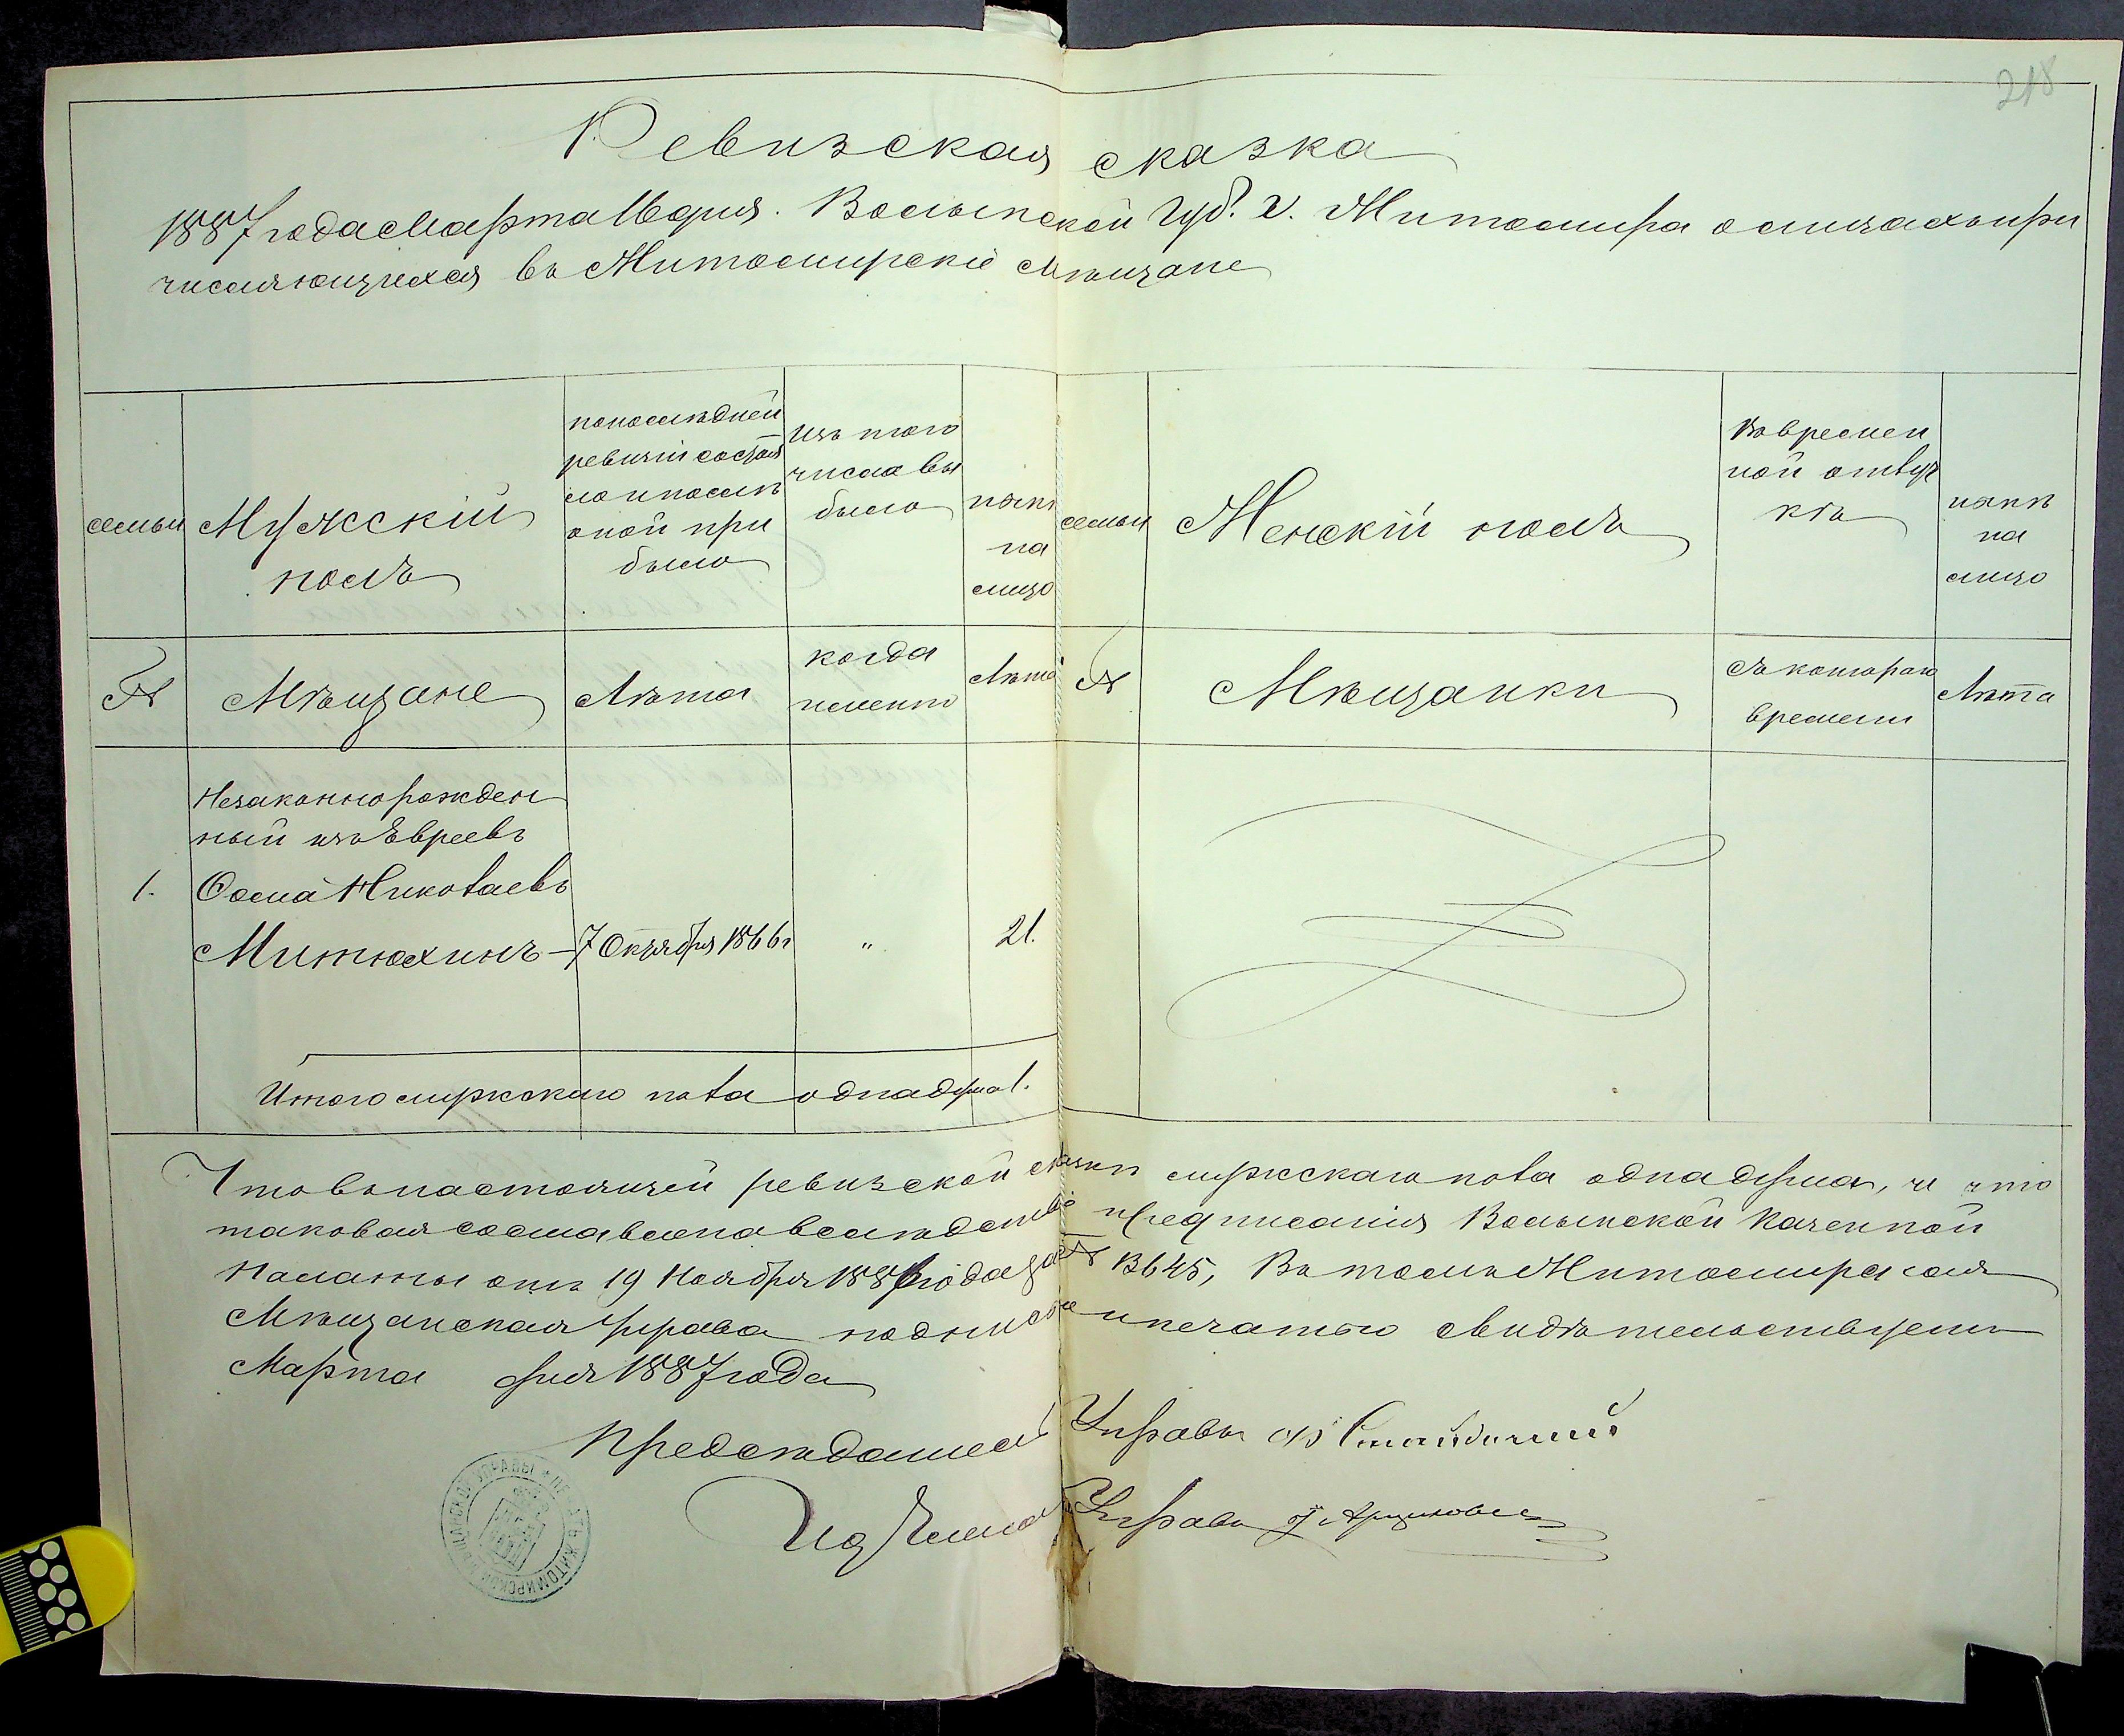 218
Ревизская сказка
1887 года Марта 11 дня. Волынской Губ. г. Житомира о лицахъ при
числяющихся въ Житомирскіе мѣщане
семьи
Мужскій
полъ
по послѣдней
ревизіи состоя
ло и послѣ
оной при
было
Изъ того
числа вы
было
нынѣ
на
лицо
семьи
Женскій полъ
Во времен
ной отлуч
кѣ
нынѣ
на
лицо
№
Мѣщане
Лѣта
когда
именно
Лѣта
№
Мѣщанки
Съ котораго
времени
Лѣта
Незаконнорожден
ный изъ Евреевъ
1. Ѳома Николаевъ
Митюхинъ - 7 Октября 1866 г. " 21.
Итого мужскаго пола одна душа 1.
Что въ настоящей ревизской сказкѣ мужскаго пола одна душа, и что
таковая составлена вслѣдствіе предписанія Волынской Казенной
Палаты отъ 19 Ноября 1886 года за № 13645, Въ томъ Житомирская
Мѣщанская Управа подписью и печатью свидѣтельствуетъ
Марта дня 1887 года
Предсѣдатель Управы
Членъ Управы
ПЕЧАТЬ ЖИТОМИРСКОЙ МѢЩАНСКОЙ УПРАВЫ